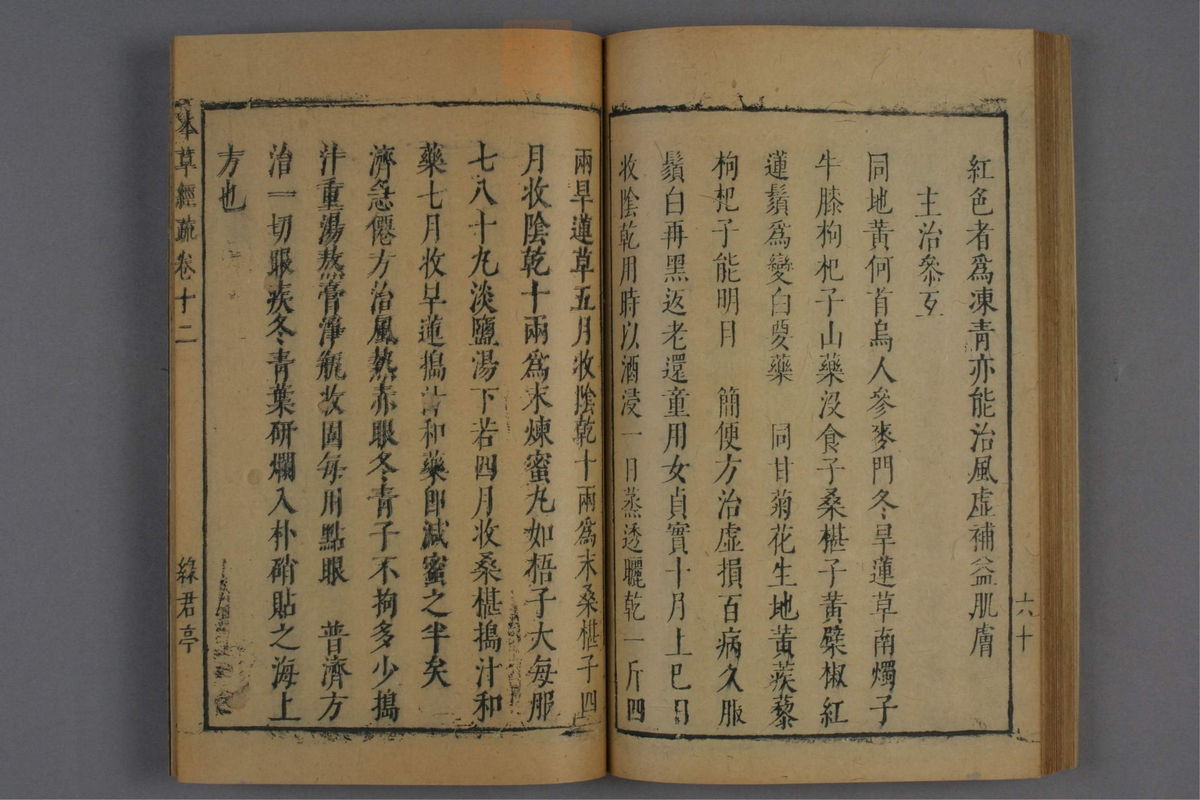 紅色者爲凍青亦能治風虛補益肌膚
主治叅互
同地黃何首烏人參麥門冬旱蓮草南燭子
牛膝枸杞子山藥沒食子桑椹子黃蘗椒紅
蓮鬚爲變白要藥　同甘菊花生地黃蒺藜
枸杞子能明目　簡便方治虛損百病久服
鬚白再黑返老還童用女貞實十月上巳日
收陰乾用時以酒浸一日蒸透曬乾一斤四
六十
兩旱蓮草五月收陰乾十兩爲末桑椹子四
月收陰乾十兩爲末煉蜜丸如梧子大每服
七八十丸淡鹽湯下若四月收桑椹搗汁和
藥七月收旱蓮搗汁和藥卽減蜜之半矣
濟急僊方治風熱赤眼冬青子不拘多少搗
汁重湯熬膏淨瓶收固每用點眼　普濟方
治一切眼疾冬青葉研爛入朴硝貼之海上
方也
本草經疏　卷十二　綠君亭